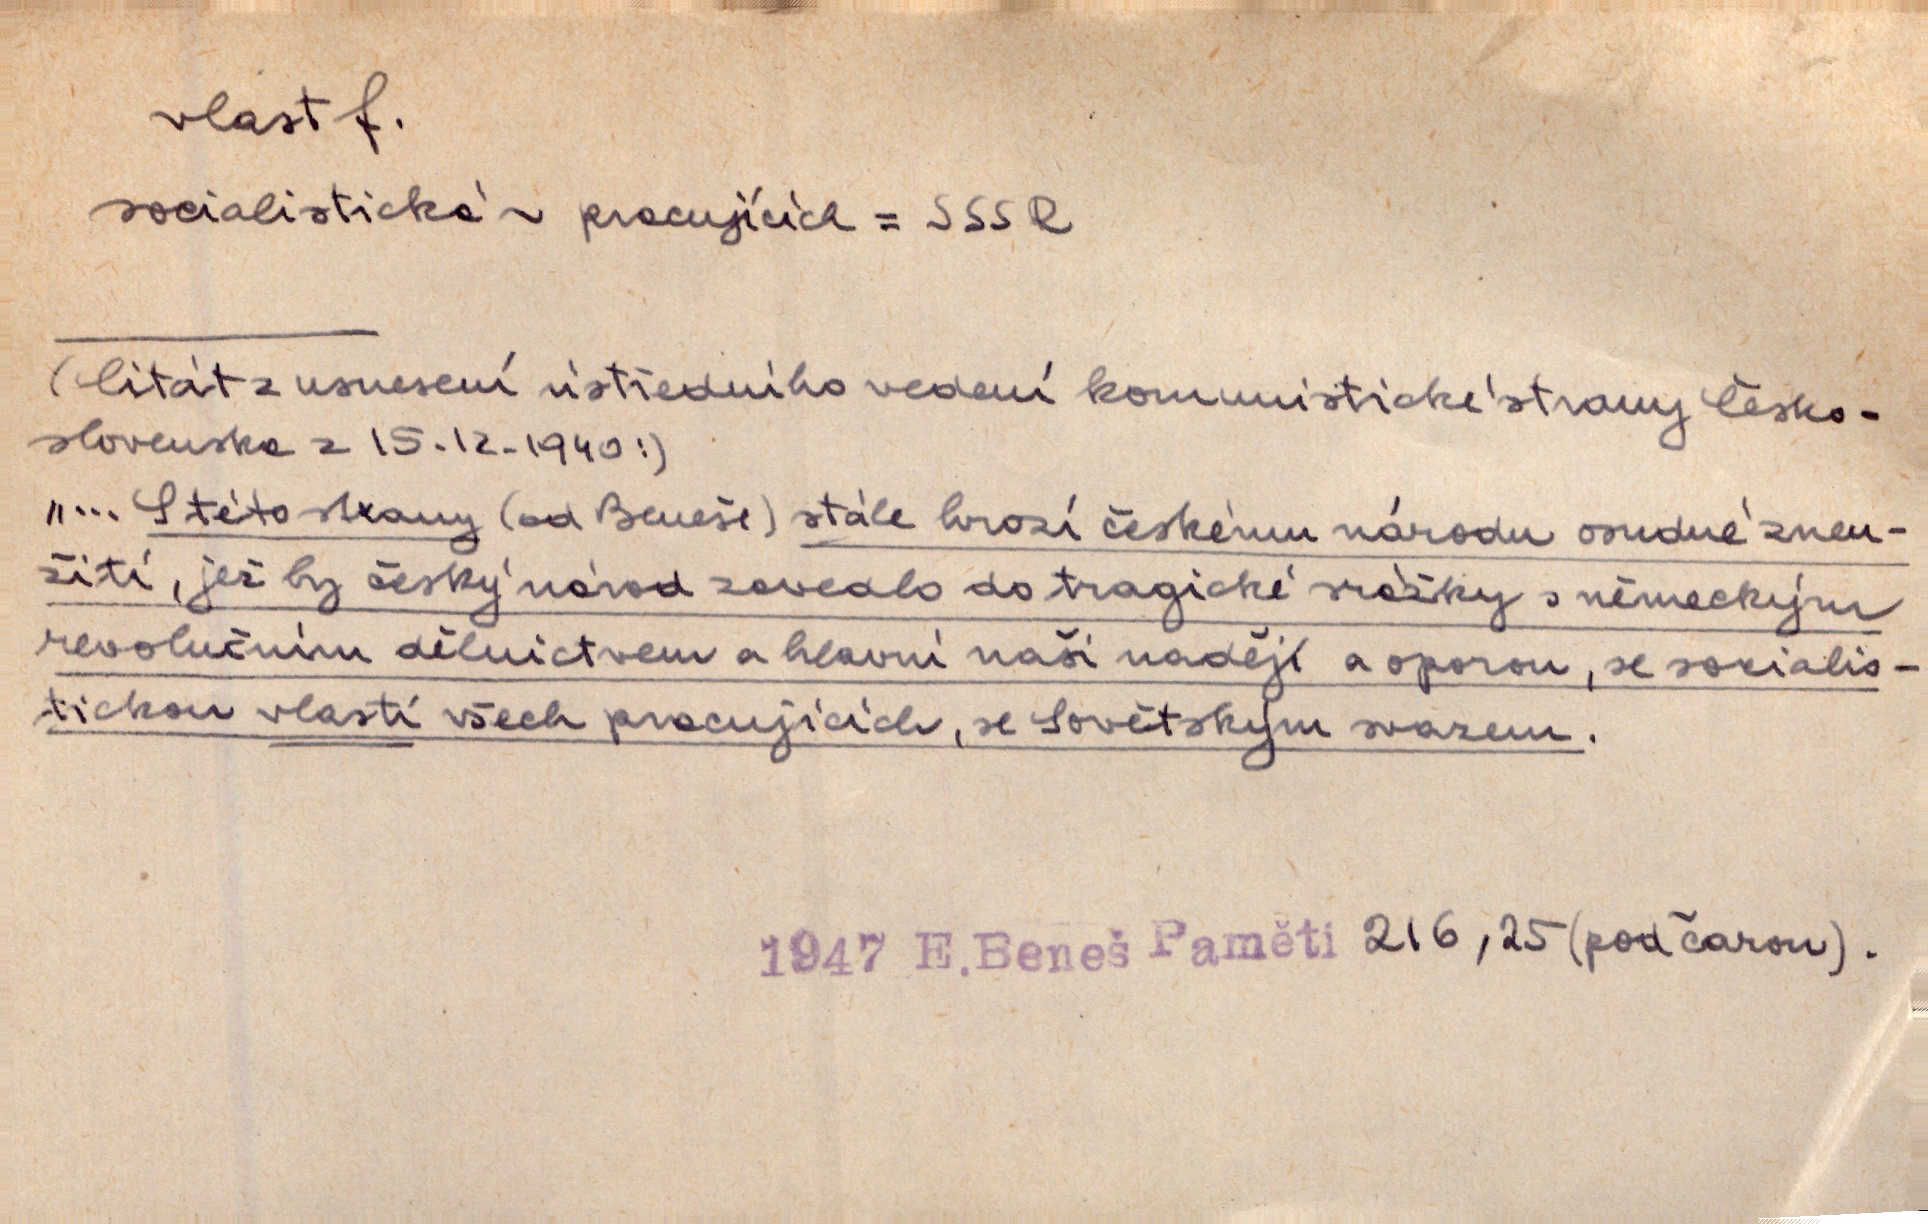 vlast f.
socialistická ~ pracujících = SSSR
(Citát z usnesení ústředního vedení komunistické strany Česko-
slovenska z 15.12.1940:)
„... S této strany (od Beneše) stále hrozí českému národu osudné zneu-
žití, jež by český národ zavedlo do tragické srážky s německým
revolučním dělnictvem a hlavní naší nadějí a oporou, se socialis-
tickou vlastí všech pracujících, se Sovětským svazem.
1947 E. Beneš Paměti 216, 25 (pod čarou).